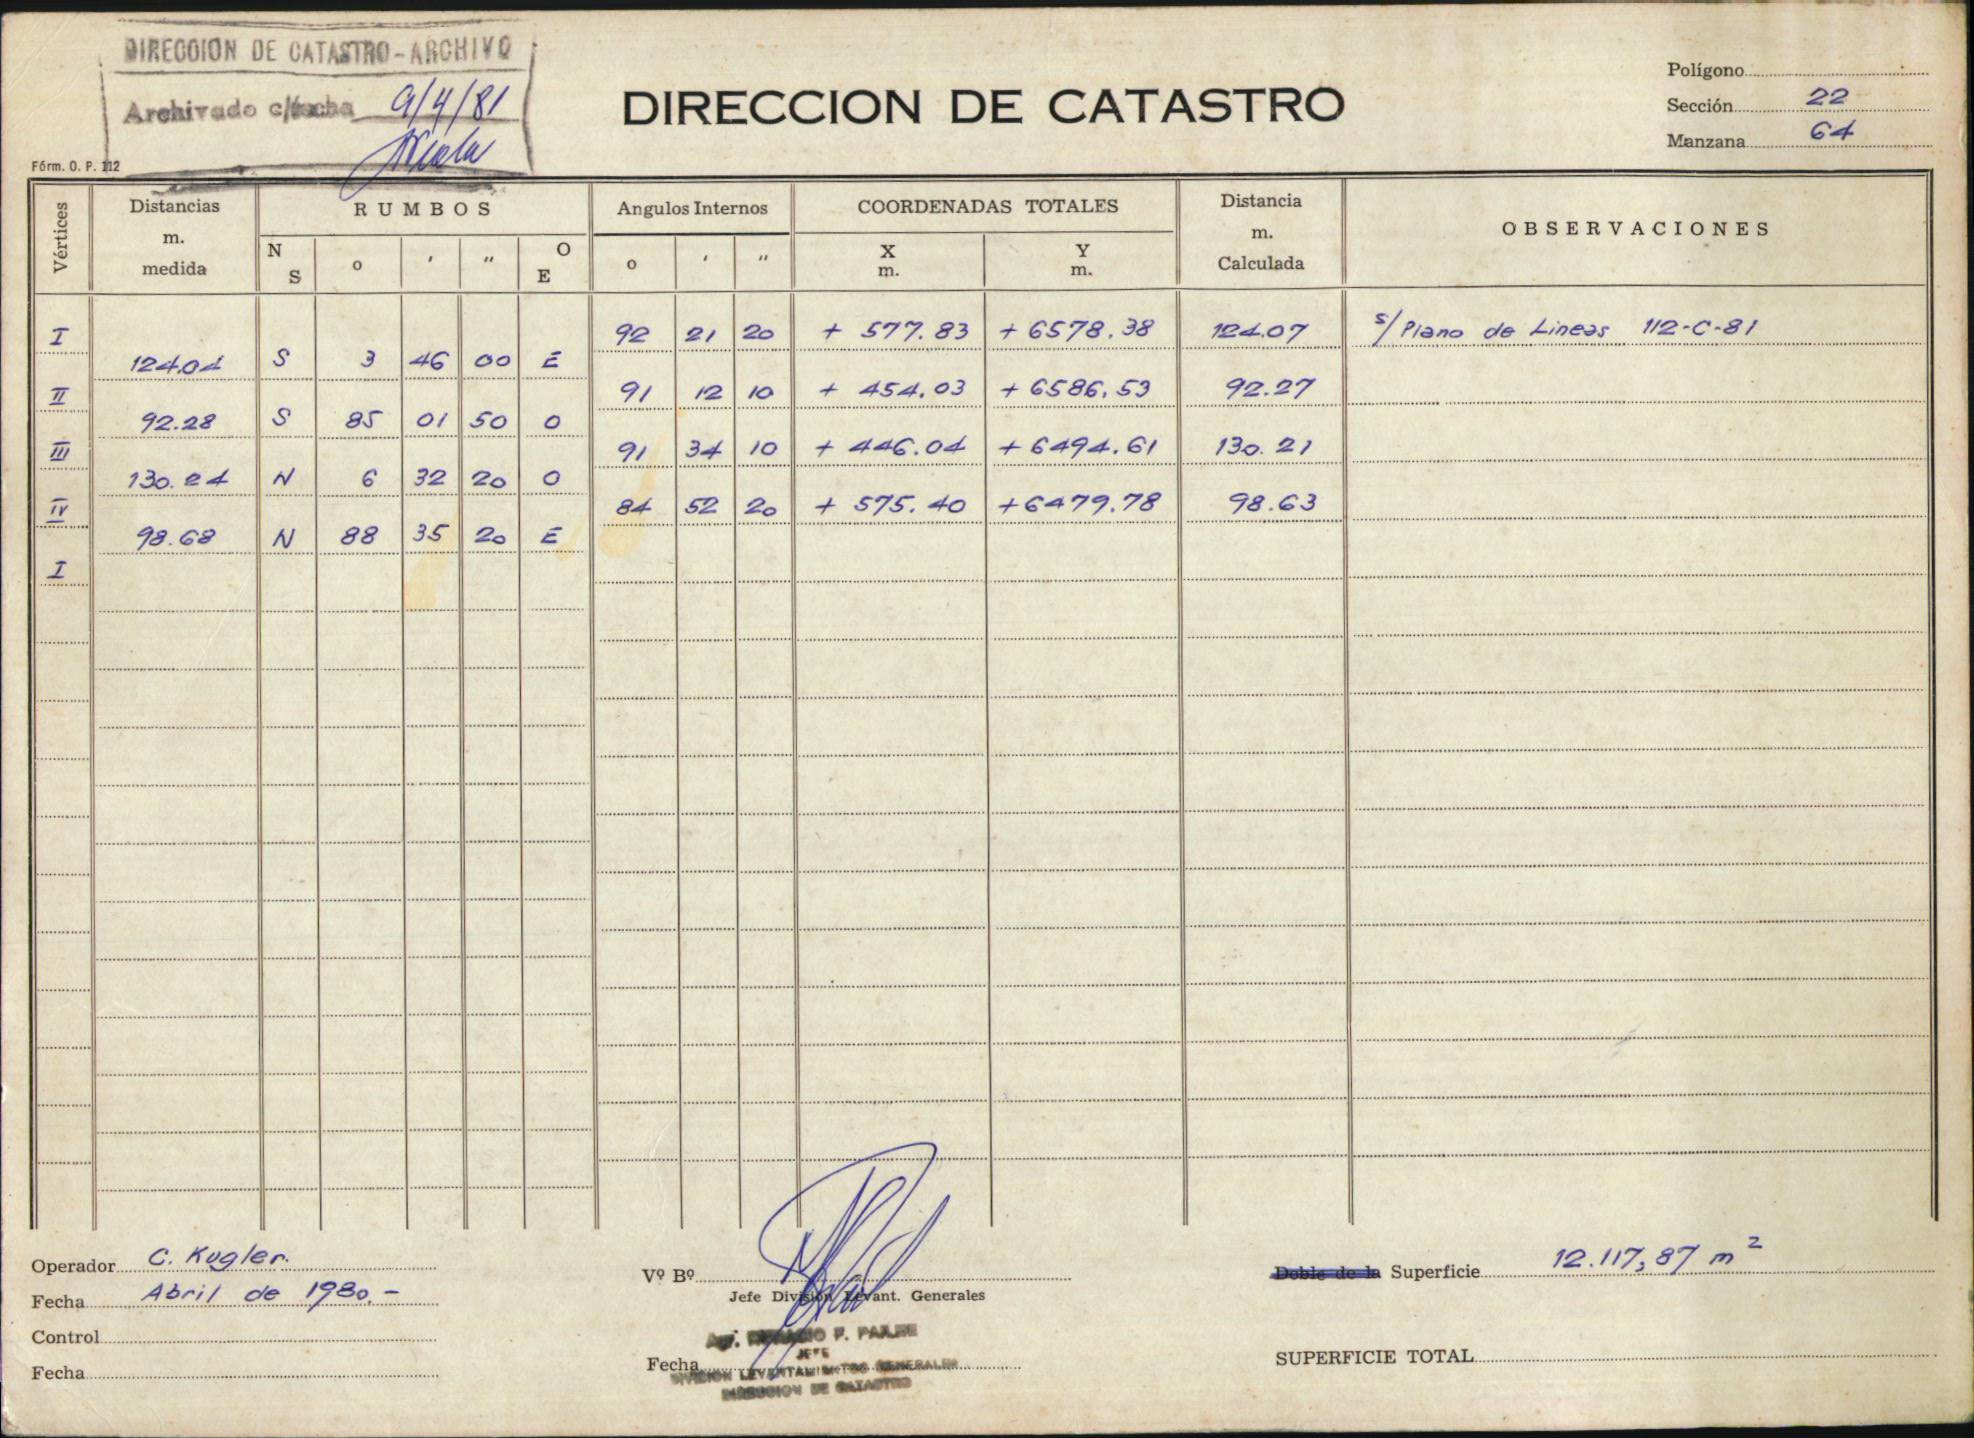 DIRECCION DE CATASTRO - ARCHIVO
Archivado c/fecha 9/4/81
Fórm. O. P. 112
DIRECCION DE CATASTRO
Polígono
Sección 22
Manzana 64
Vértices
Distancias m. medida
RUMBOS
N S o ' " O E
Angulos Internos
o ' "
COORDENADAS TOTALES
X m. Y m.
Distancia m. Calculada
OBSERVACIONES
I 92 21 20 + 577.83 + 6578.38 124.07 s/ Plano de Lineas 112-C-81
124.04 S 3 46 00 E
II 91 12 10 + 454.03 + 6586.53 92.27
92.28 S 85 01 50 O
III 91 34 10 + 446.04 + 6494.61 130.21
130.24 N 6 32 20 O
IV 84 52 20 + 575.40 + 6479.78 98.63
98.68 N 88 35 20 E
I
Operador C. Kugler.
Fecha Abril de 1980.-
Control
Fecha
Vº Bº
Jefe División Levant. Generales
F. 
JEFE
DIVISION LEVANTAMIENTOS GENERALES
DIRECCION DE CATASTRO
Fecha
Doble de la Superficie 12.117,87 m²
SUPERFICIE TOTAL